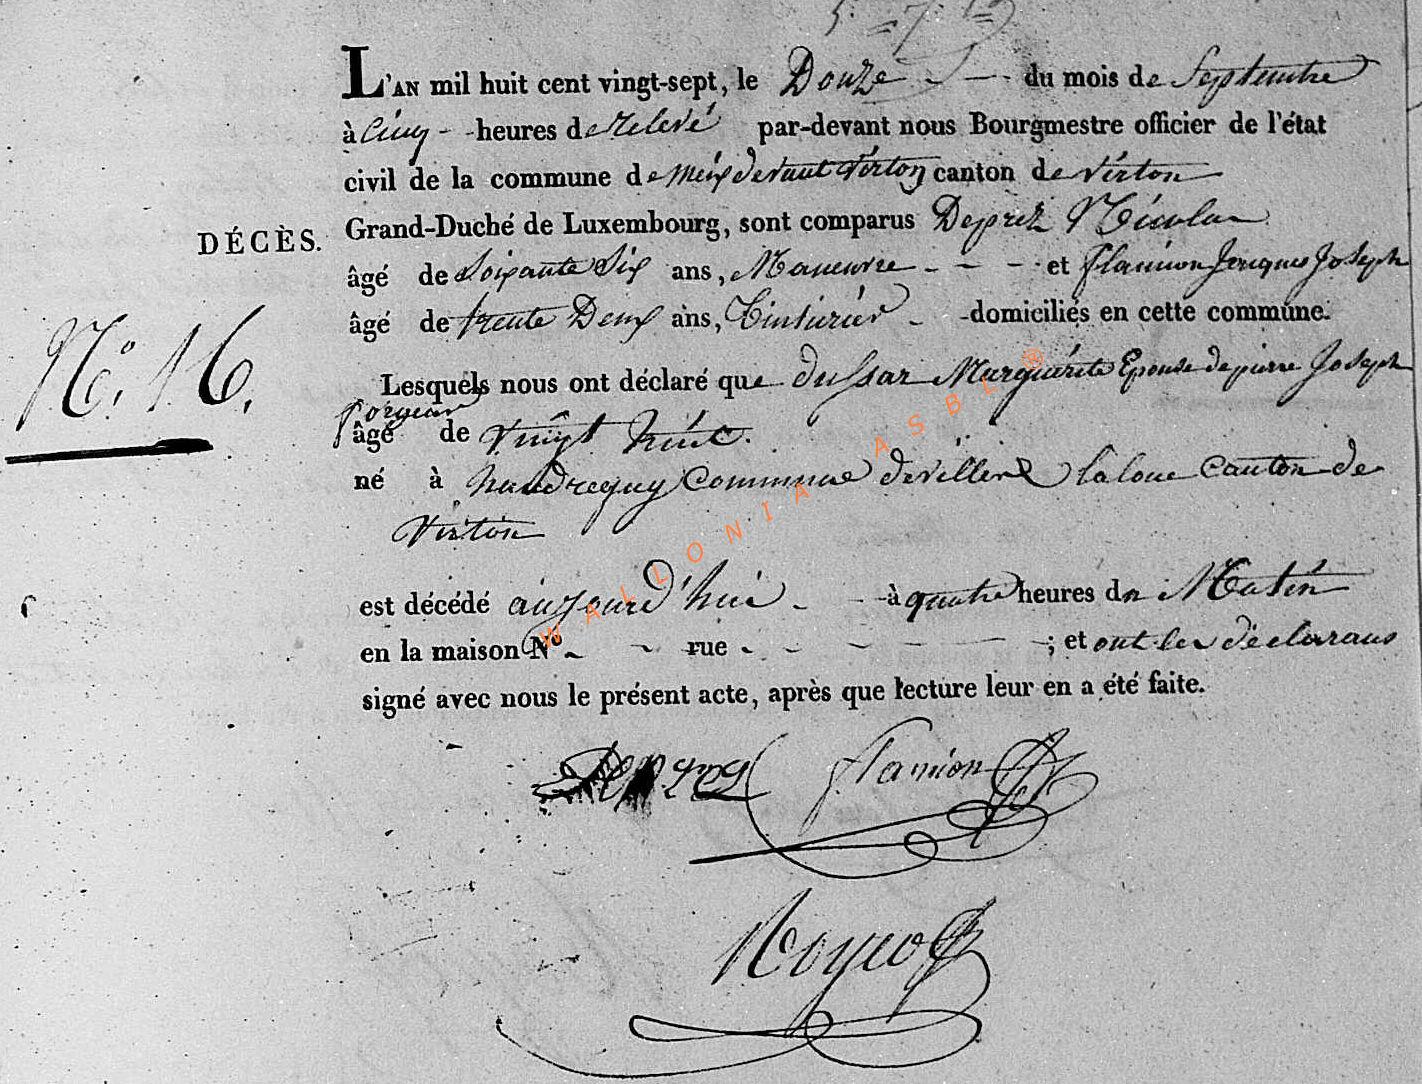 L'AN mil huit cent vingt-sept, le Douze du mois de Septembre
à Cinq heures de relevé par-devant nous Bourgmestre officier de l'état
civil de la commune de meix devant virton canton de virton
DÉCÈS.
Grand-Duché de Luxembourg, sont comparus Deprez Nicolas
âgé de Soixante Six ans, Maneuvre et flamion Jacques Joseph
âgé de trente Deux ans, Tinturier domiciliés en cette commune.
N° 16.
Lesquels nous ont déclaré que dussar Marguerite Epouse de pierre Joseph
forgeur
âgé de vingt huit.
né à commune de villers la loue Canton de
Virton
est décédé aujourd'hui à quatre heures du Matin
en la maison N° rue ; et ont les déclarans
signé avec nous le présent acte, après que lecture leur en a été faite.
Deprez flamion
WALLONIA ASBL ®